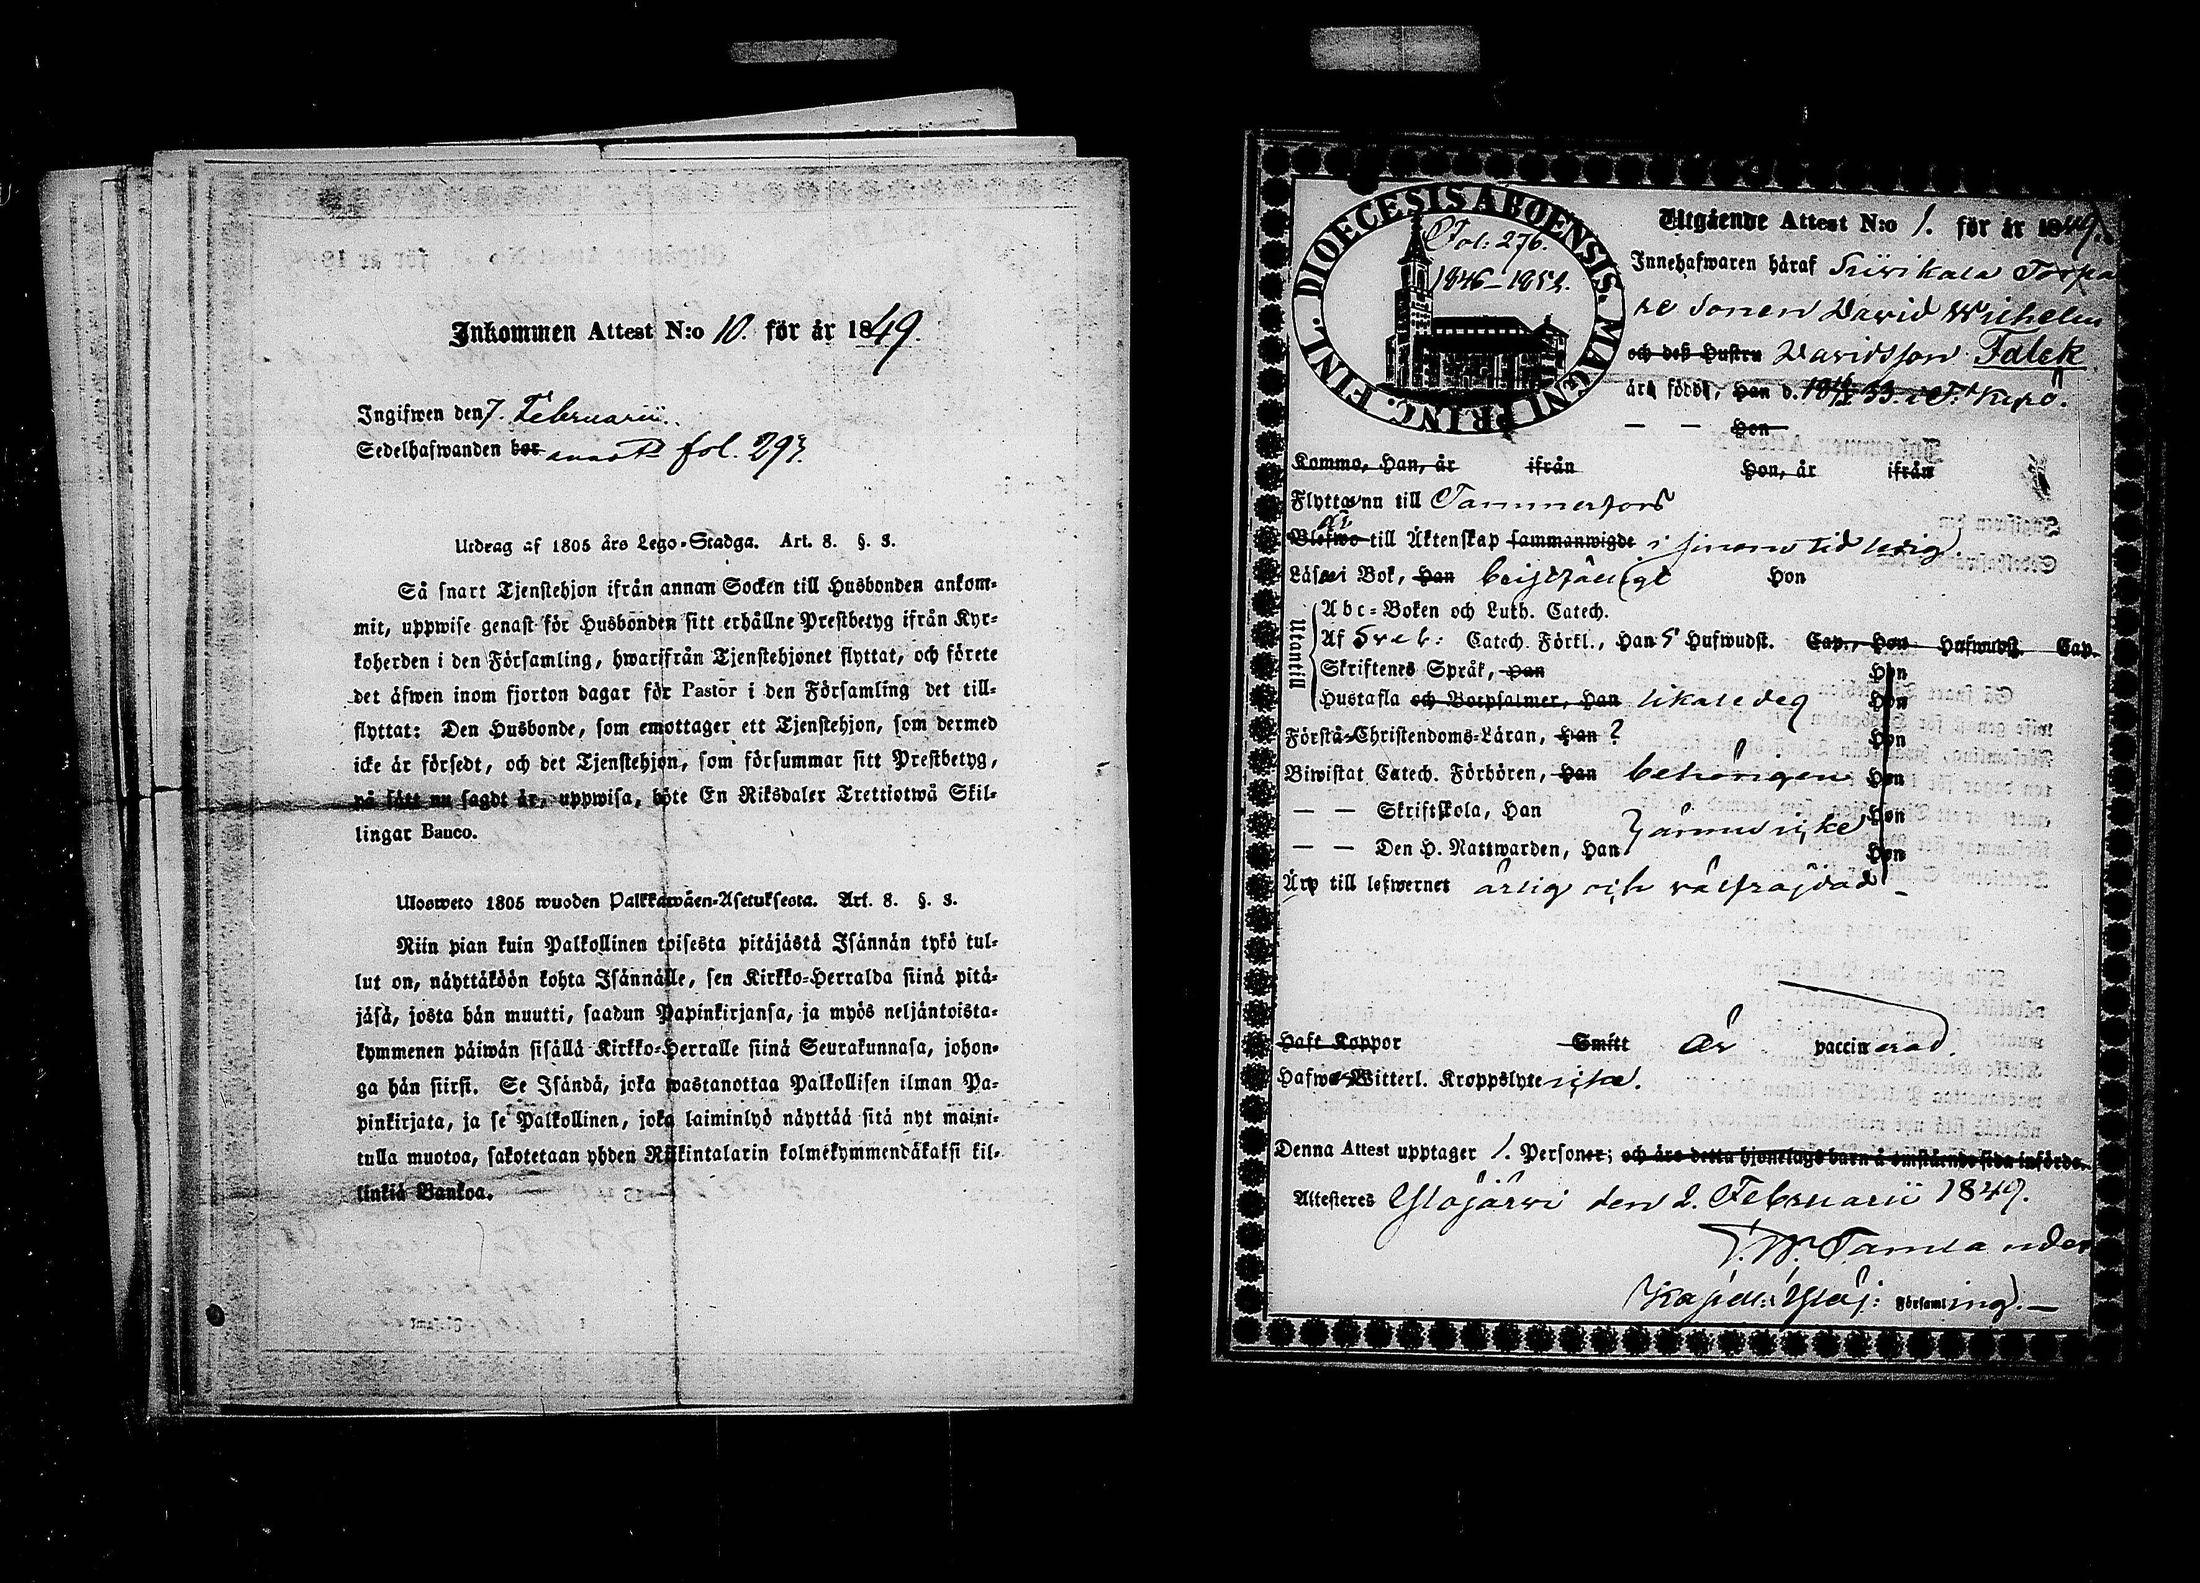 Inkommen Attest N:o 10. för år 1849.
Ingifwen den 7. Februarii.
Sedelhafwanden bor fol. 293.
Utdrag af 1805 års Lego-Stadga. Art. 8. §. 3.
Så snart Tjenstehjon ifrån annan Socken till Husbonden ankom-
mit, uppwise genast för Husbonden sitt erhållne Prestbetyg ifrån Kyr-
koherden i den Församling, hwarifrån Tjenstehjonet flyttat, och förete
det äfwen inom fjorton dagar för Pastor i den Församling det till-
flyttat: Den Husbonde, som emottager ett Tjenstehjon, som dermed
icke är försedt, och det Tjenstehjon, som försummar sitt Prestbetyg,
på sätt nu sagdt är, uppwisa, böte En Riksdaler Trettiotwå Skil-
lingar Banco.
Ulosweto 1805 wuoden Palkkawäen-Asetuksesta. Art. 8. §. 3.
Niin pian kuin Palkollinen toisesta pitäjästä Isännän tykö tul-
lut on, näyttäköön kohta Isännälle, sen Kirkko-Herralda siinä pitä-
jäsä, josta hän muutti, saadun Papinkirjansa, ja myös neljäntoista-
kymmenen päiwän sisällä Kirkko-Herralle siinä Seurakunnasa, johon-
ga hän siirsi. Se Isändä, joka wastanottaa Palkollisen ilman Pa-
pinkirjata, ja se Palkollinen, joka laiminlyö näyttää sitä nyt maini-
tulla muotoa, sakotetaan yhden Riikintalarin kolmekymmendäkaksi kil-
linkiä Bankoa.
DIOECESIS ABOENSIS. MAGNI PRINC. FINL.
Fol: 276.
1846-1852.
Utgående Attest N:o 1. för år 1849.
Innehafwaren häraf Siivikala Torpa
re Sonen David Wilhelm
och deß Hustru Davidsson Falck
äro födde, Han d. 18 33 i Kyrö.
— — Hon
Kommo, Han, år ifrån Hon, år ifrån
Flyttar nu till Tammerfors
är
Blefwo till Äktenskap sammanwigde i sinom tid ledig
Läser i Bok, Han Hon
Utantill
Abc-Boken och Luth. Catech.
Af Sveb: Catech. Förkl., Han 5 Hufwudst. Cap., Hon Hufwudst. Cap.
Skriftenes Språk, Han Hon
Hustafla och Botpsalmer, Han likaledes Hon
Förstå Christendoms-Läran, Han ? Hon
Biwistat Catech. Förhören, Han behörigen Hon
— — Skriftskola, Han Hon
— — Den H. Nattwarden, Han ännu icke Hon
Äro till lefwernet ärlig och välfräjdad
Haft Koppor Smitt Är vaccinerad.
Hafwa Witterl. Kroppslyte icke.
Denna Attest upptager 1. Personer; och äro detta hjonelags barn å omstående sida införde.
Attesteres Ylöjärvi den 2. Februarii 1849.
Kapell: Ylöj: Församling.